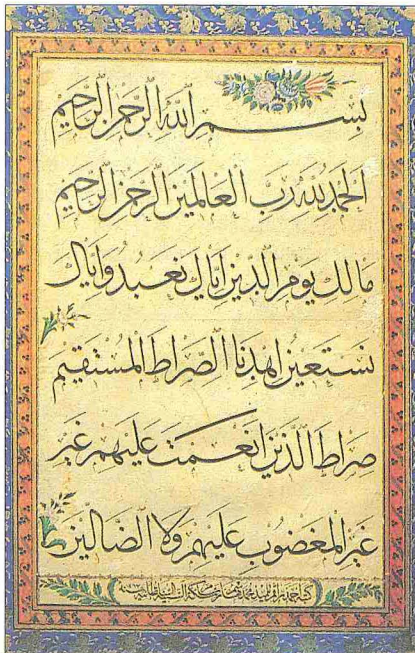 بِسْمِ اللّٰهِ الرَّحْمٰنِ الرَّحِیْمِ
اَلْحَمْدُ لِلّٰهِ رَبِّ الْعَالَمِیْنَ الرَّحْمٰنِ الرَّحِیْمِ
مَالِكِ یَوْمِ الدِّیْنِ اِیَّاكَ نَعْبُدُ وَاِیَّاكَ
نَسْتَعِیْنُ اِهْدِنَا الصِّرَاطَ الْمُسْتَقِیْمَ
صِرَاطَ الَّذِیْنَ اَنْعَمْتَ عَلَیْهِمْ غَیْرِ
غَیْرِ الْمَغْضُوْبِ عَلَیْهِمْ وَلَا الضَّالِّیْنَ